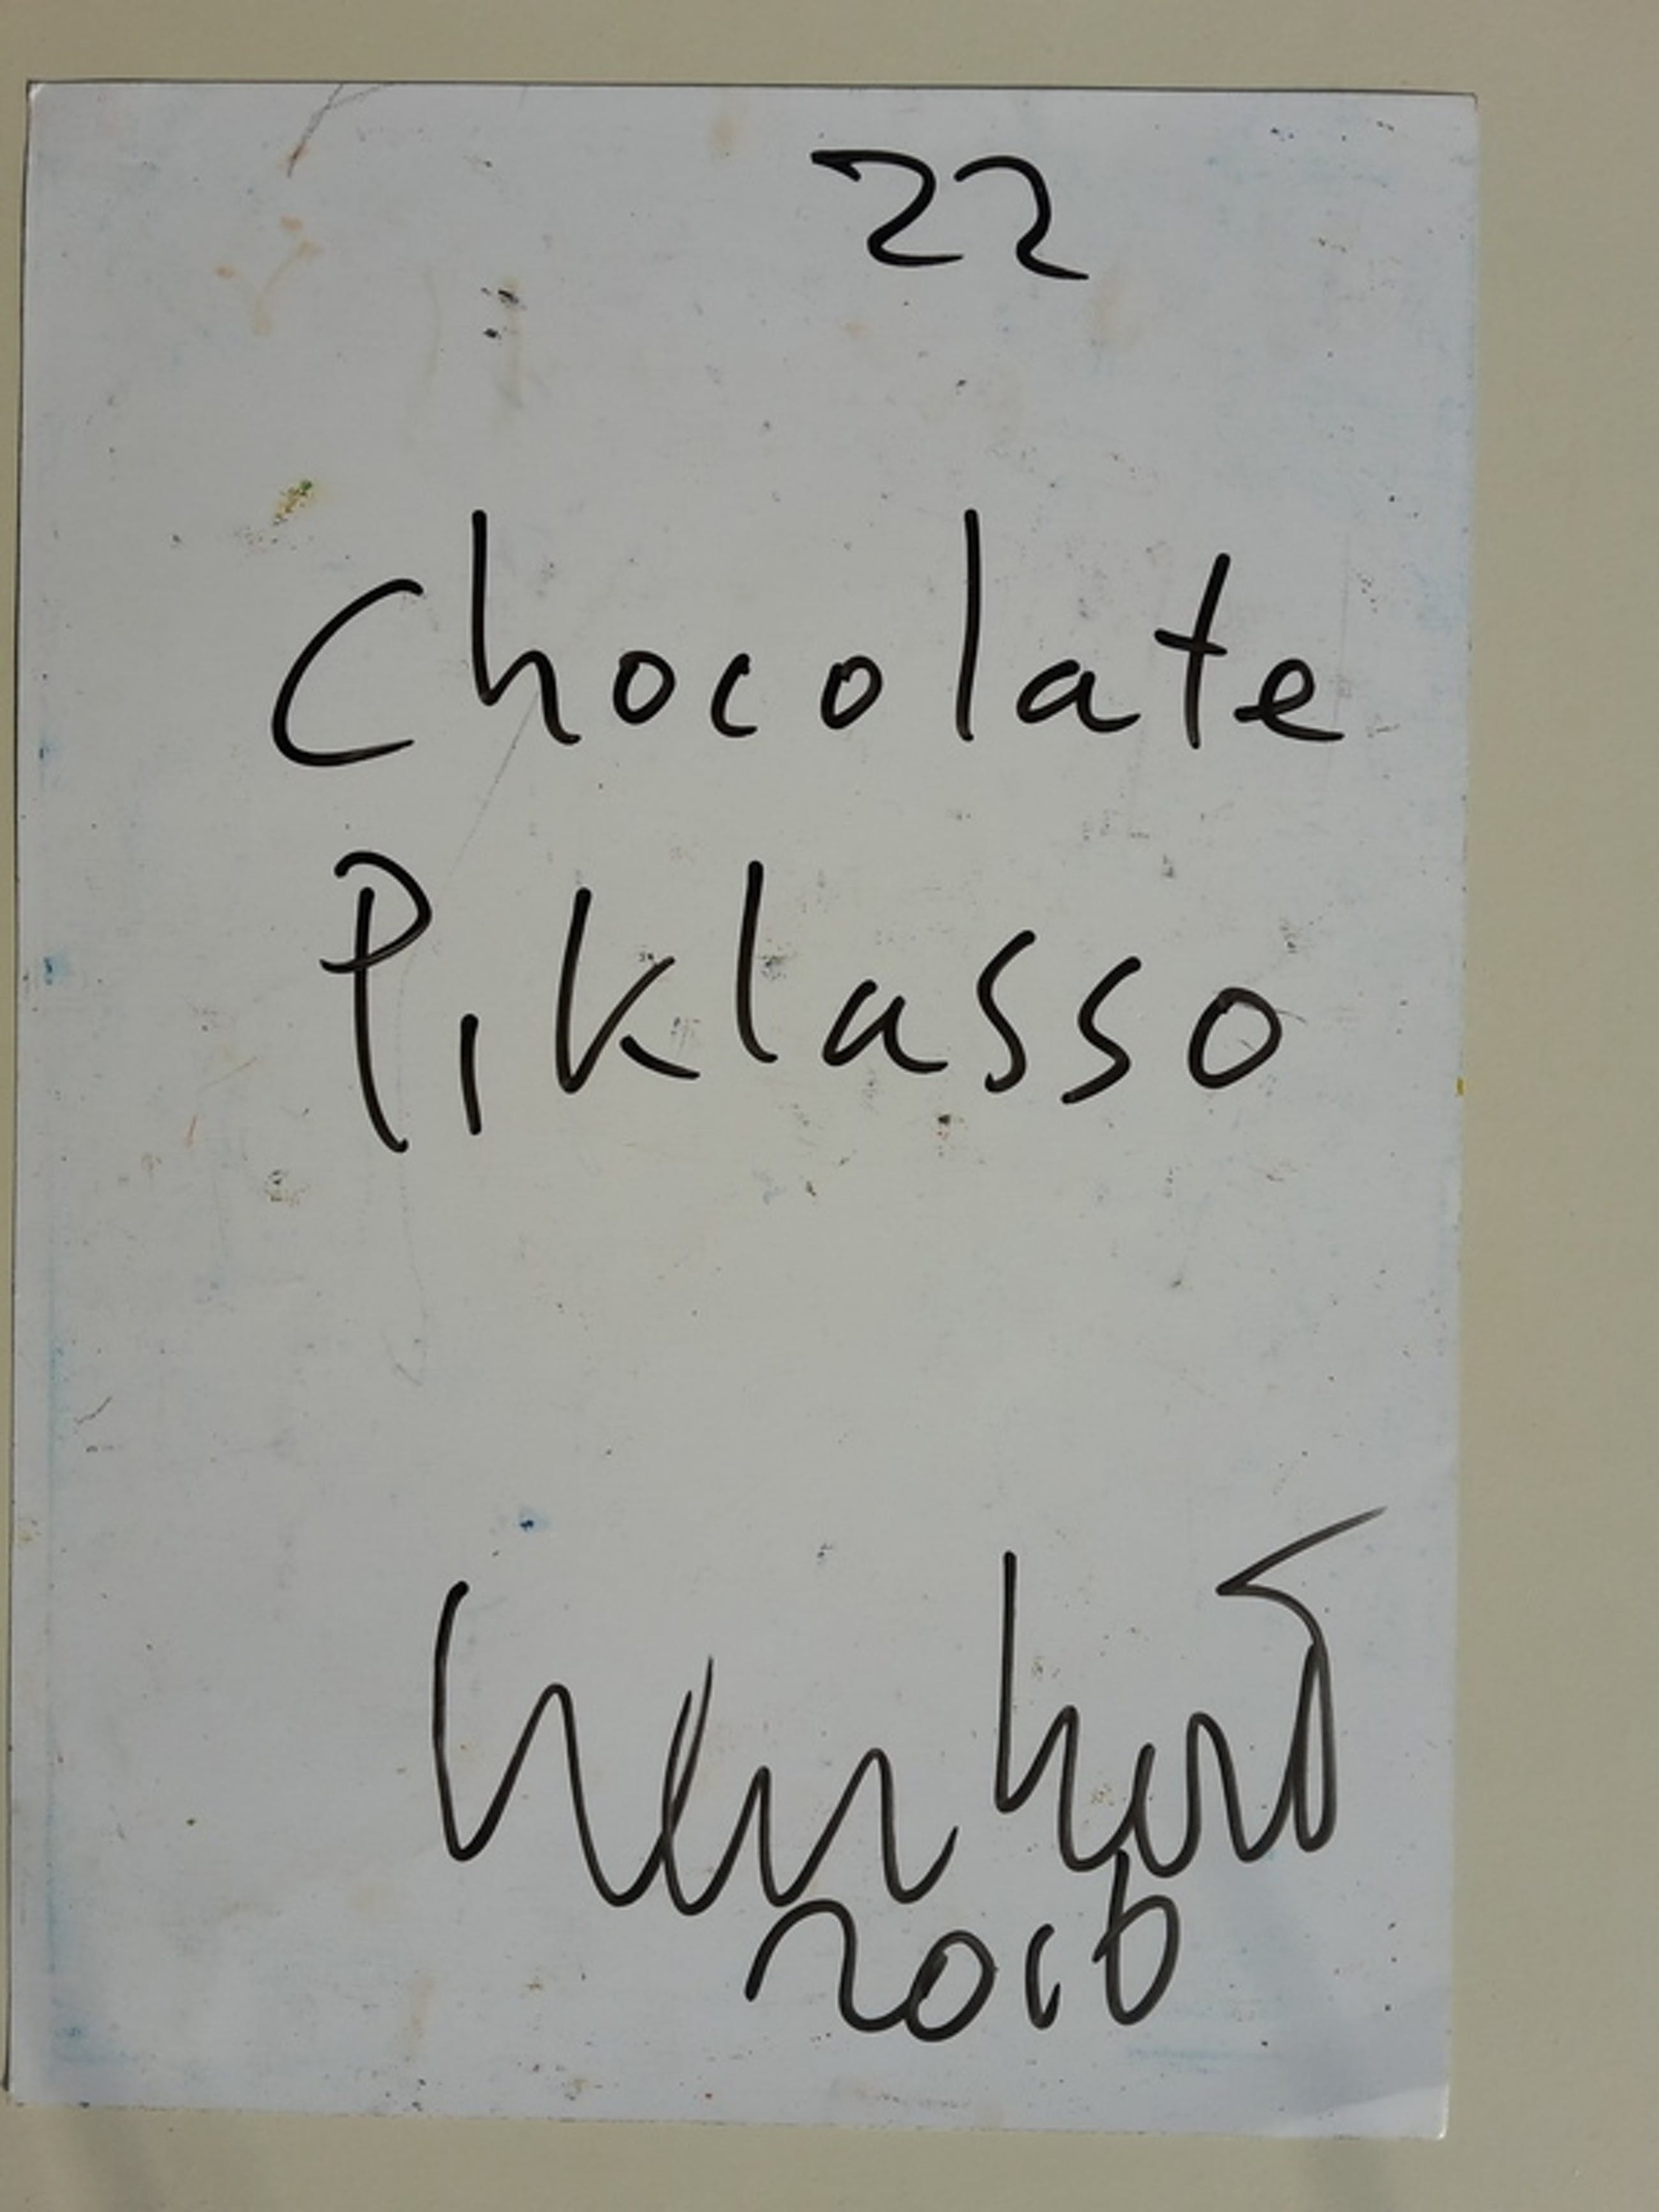 22
Chocolate
Piklasso
2016